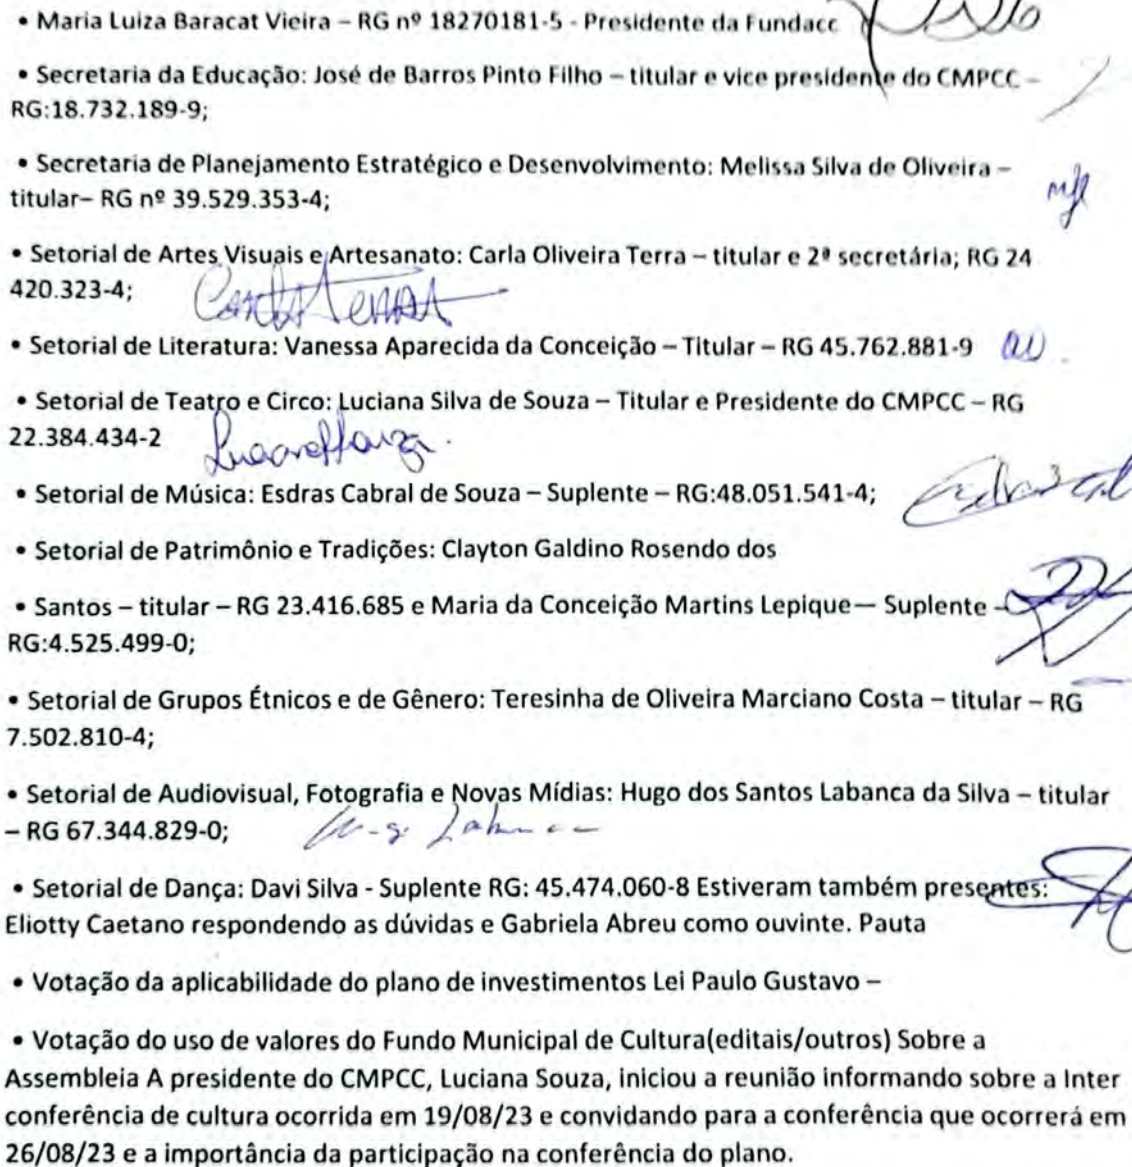 • Maria Luiza Baracat Vieira – RG nº 18270181-5 - Presidente da Fundacc
• Secretaria da Educação: José de Barros Pinto Filho – titular e vice presidente do CMPCC –
RG:18.732.189-9;
• Secretaria de Planejamento Estratégico e Desenvolvimento: Melissa Silva de Oliveira –
titular– RG nº 39.529.353-4;
• Setorial de Artes Visuais e Artesanato: Carla Oliveira Terra – titular e 2ª secretária; RG 24
420.323-4;
• Setorial de Literatura: Vanessa Aparecida da Conceição – Titular – RG 45.762.881-9
• Setorial de Teatro e Circo: Luciana Silva de Souza – Titular e Presidente do CMPCC – RG
22.384.434-2
• Setorial de Música: Esdras Cabral de Souza – Suplente – RG:48.051.541-4;
• Setorial de Patrimônio e Tradições: Clayton Galdino Rosendo dos
• Santos – titular – RG 23.416.685 e Maria da Conceição Martins Lepique— Suplente –
RG:4.525.499-0;
• Setorial de Grupos Étnicos e de Gênero: Teresinha de Oliveira Marciano Costa – titular – RG
7.502.810-4;
• Setorial de Audiovisual, Fotografia e Novas Mídias: Hugo dos Santos Labanca da Silva – titular
– RG 67.344.829-0;
• Setorial de Dança: Davi Silva - Suplente RG: 45.474.060-8 Estiveram também presentes:
Eliotty Caetano respondendo as dúvidas e Gabriela Abreu como ouvinte. Pauta
• Votação da aplicabilidade do plano de investimentos Lei Paulo Gustavo –
• Votação do uso de valores do Fundo Municipal de Cultura(editais/outros) Sobre a
Assembleia A presidente do CMPCC, Luciana Souza, iniciou a reunião informando sobre a Inter
conferência de cultura ocorrida em 19/08/23 e convidando para a conferência que ocorrerá em
26/08/23 e a importância da participação na conferência do plano.